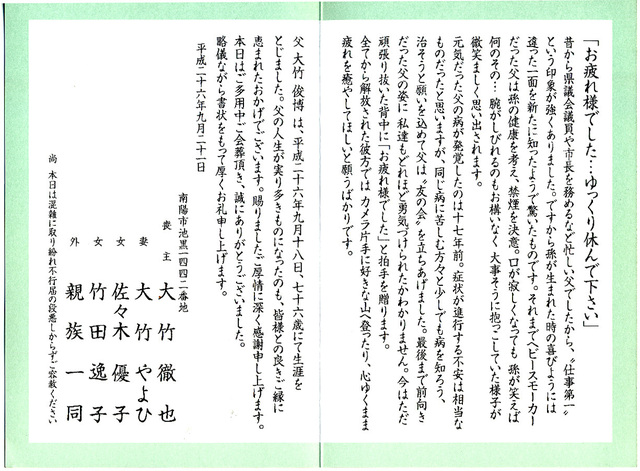 「お疲れ様でした…ゆっくり休んで下さい」
昔から県議会議員や市長を務めるなど忙しい父でしたから、〝仕事第一〟
という印象が強くありました。ですから孫が生まれた時の喜びようには
違った一面を新たに知ったようで驚いたものです。それまでヘビースモーカー
だった父は孫の健康を考え、禁煙を決意。口が寂しくなっても 孫が笑えば
何のその… 腕がしびれるのもお構いなく 大事そうに抱っこしていた様子が
微笑ましく思い出されます。
元気だった父の病が発覚したのは十七年前。症状が進行する不安は相当な
ものだったと思いますが、同じ病に苦しむ方々と少しでも病を知ろう、
治そうと願いを込めて父は〝友の会〟を立ちあげました。最後まで前向き
だった父の姿に 私達もどれほど勇気づけられたかわかりません。今はただ
頑張り抜いた背中に「お疲れ様でした」と拍手を贈ります。
全てから解放された彼方では カメラ片手に好きな山へ登ったり、心ゆくまま
疲れを癒やしてほしいと願うばかりです。
父 大竹 俊博 は、平成二十六年九月十八日、七十六歳にて生涯を
とじました。父の人生が実り多きものになったのも、皆様との良きご縁に
恵まれたおかげでございます。賜りましたご厚情に深く感謝申し上げます。
本日はご多用中ご会葬頂き、誠にありがとうございました。
略儀ながら書状をもって厚くお礼申し上げます。
平成二十六年九月二十一日
南陽市池黒一四四二番地
喪主 大竹 徹也
妻 大竹 やよひ
女 佐々木 優子
女 竹田 逸子
外 親族一同
尚 本日は混雑に取り紛れ不行届の段悪しからずご容赦ください